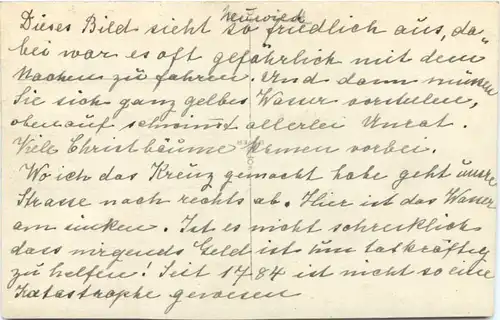 Neuwied
Dieses Bild sieht so friedlich aus, da-
bei war es oft gefährlich mit dem
Nachen zu fahren. Und dann müssen
Sie sich ganz gelbes Wasser vorstellen,
obenauf schwimmt allerlei Unrat.
Viele Christbäume kamen vorbei.
Wo ich das Kreuz gemacht habe geht unsre
Strasse nach rechts ab. Hier ist das Wasser
am sinken. Ist es nicht schrecklich
dass nirgends Geld ist um tatkräftig
zu helfen! Seit 1784 ist nicht so eine
Katastrophe gewesen